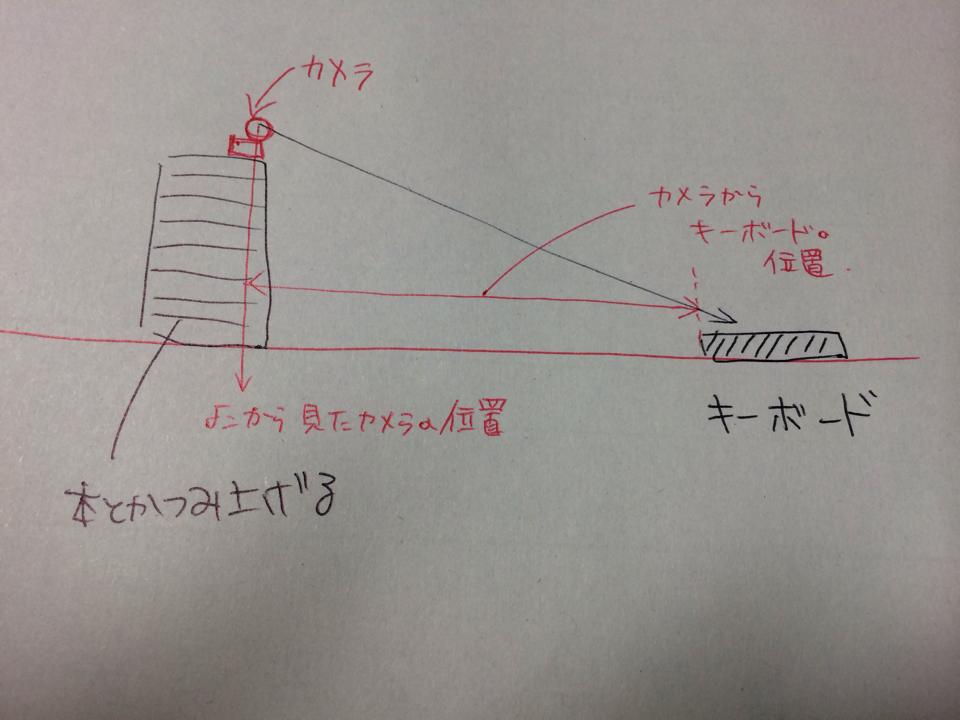 カメラ
カメラから
キーボードの
位置.
よこから見たカメラの位置
キーボード
本とかつみ上げる